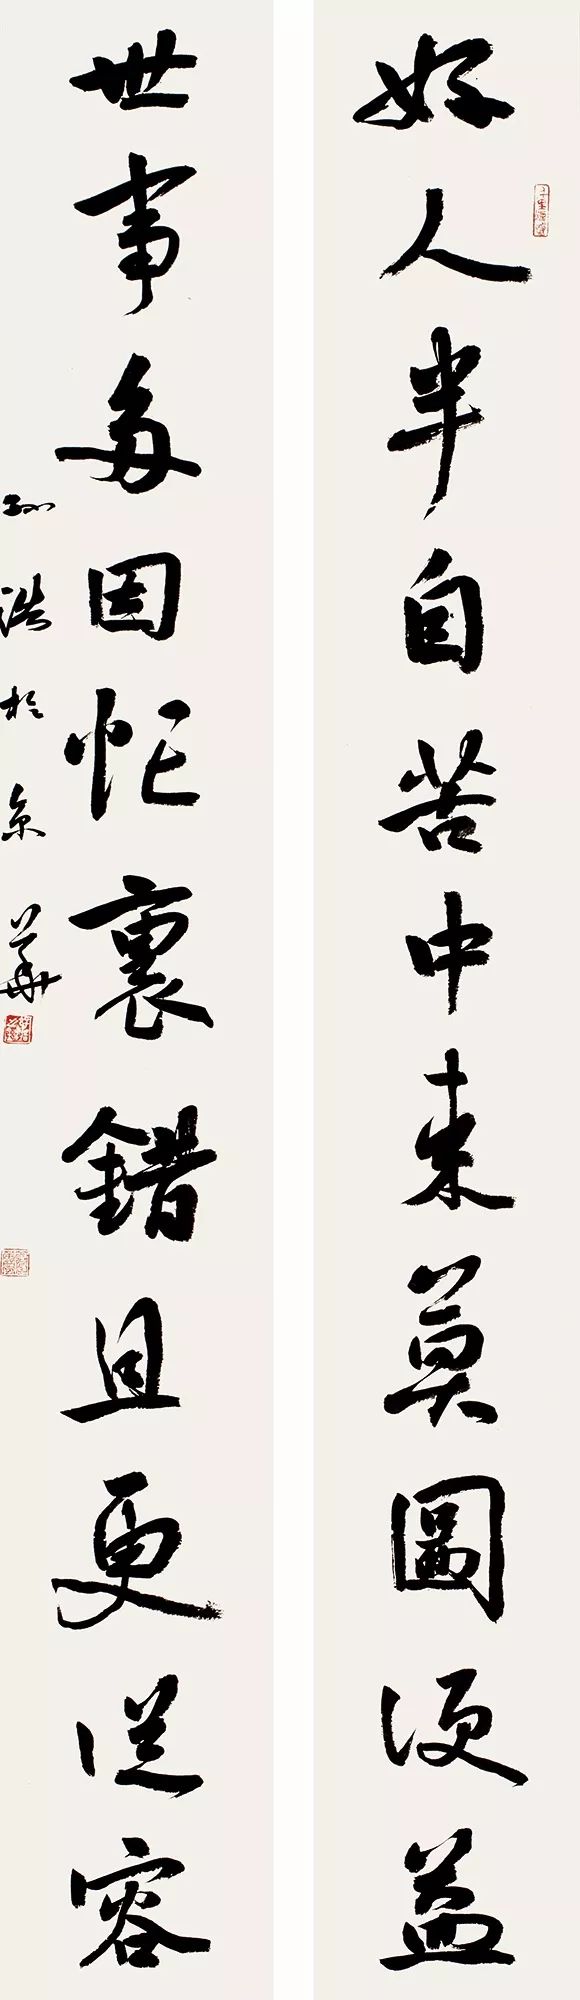 好人半自苦中来莫圖便益
世事多因忙裏錯且更從容
孙浩於京華